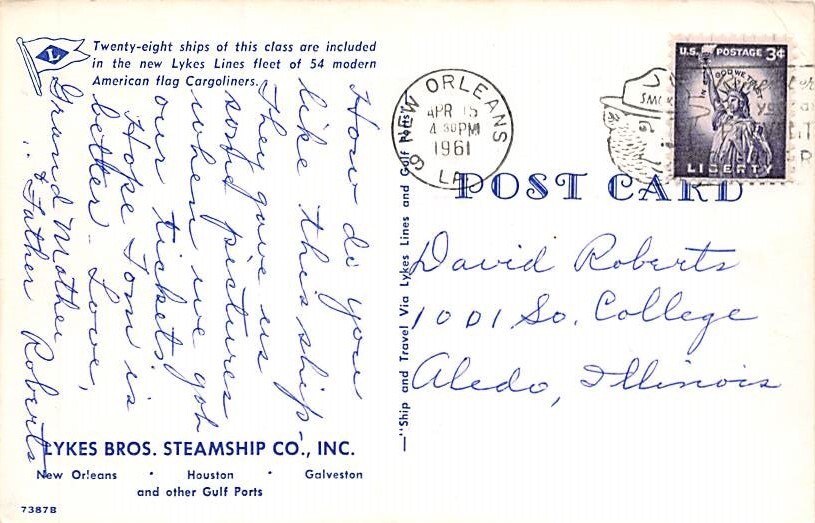 L
Twenty-eight ships of this class are included
in the new Lykes Lines fleet of 54 modern
American flag Cargoliners.
How do you
like this ship -
They gave us
some pictures
when we got
our tickets.
Hope Tom is
better - Love,
Grand Mother
& Father Roberts
LYKES BROS. STEAMSHIP CO., INC.
New Orleans • Houston • Galveston
and other Gulf Ports
7387B
—"Ship and Travel Via Lykes Lines and Gulf Ports"
NEW ORLEANS
APR 15
4 30PM
1961
LA.
9
SMOK
U.S. POSTAGE 3¢
IN GOD WE TRUST
LIBERTY
POST CARD
David Roberts
1001 So. College
Aledo, Illinois